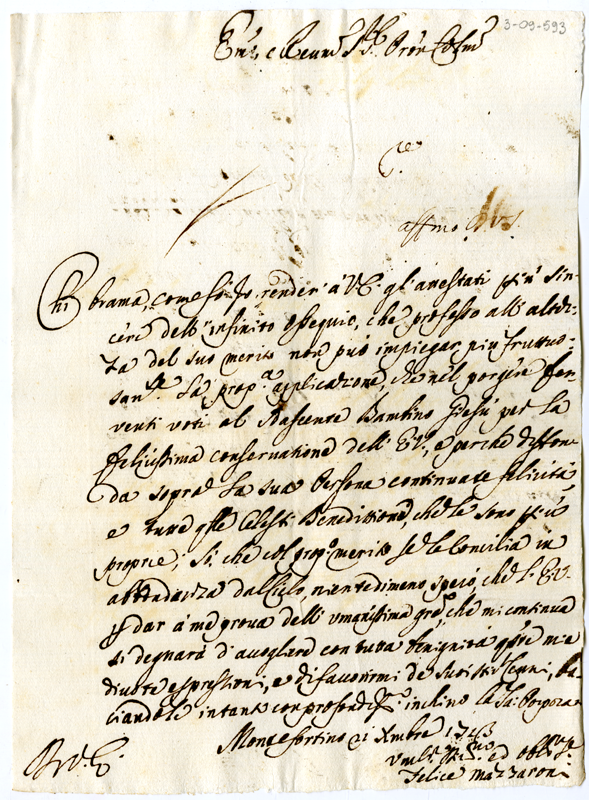 3-09-593
Em.o e Reum.o Sig.r Pron Colmo
Chi brama, come fò Jo, render à V.E. gl'attestati più sin-
ceri dell'infinito ossequio, che professo all'altez-
za del suo merito non può impiegar più fruttuo-
sam.te La prop.a applicazione, che nel porgere fer-
venti voti al Nascente Bambino Giesù per La
felicissima conservatione dell'E.V., e perche diffon-
da sopra La sua Persona continuate felicità
e tutte q.lle Celesti Benedittioni, che le sono più
proprie; Sò, che col prop.o merito se le Concilia in
abbondanza dal Cielo, nientedimeno spero, che L'E.V.
p dar à me prova dell'umanissima gra, che mi continua
si degnarà d'accogliere con tutta benignità q.ste mie
divote espressioni, e di favorirmi de suoi stim.i Cenni, ba-
ciandole intanto con profondis.o inchino la Sa: Porpora
Montefortino 21 Xmbre 1743
Um.o Dev.mo ed Obl.mo
Felice Mazzaroni